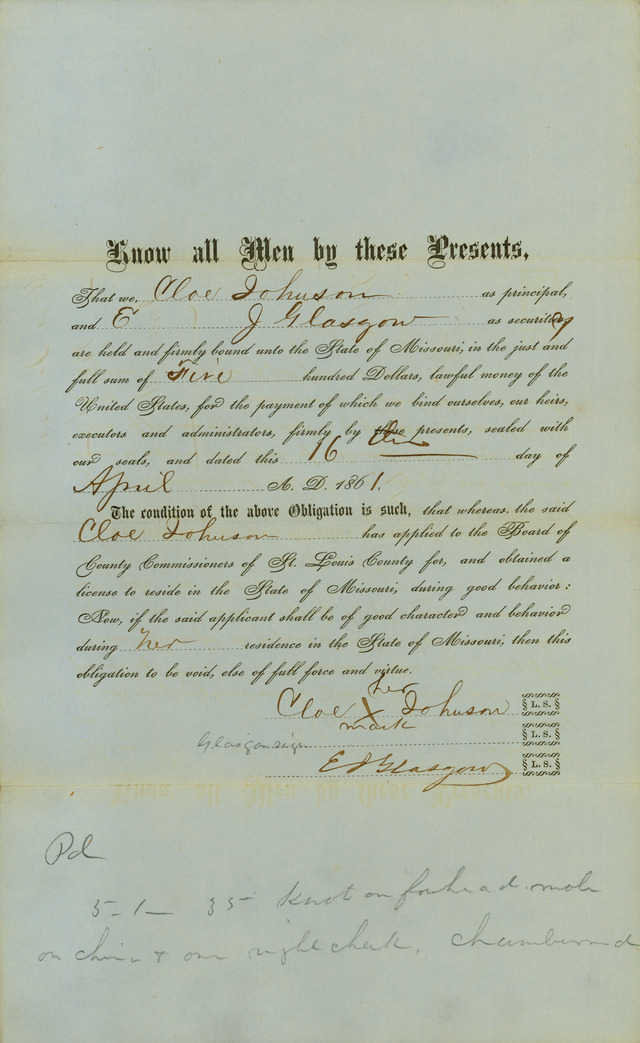 Know all Men by these Presents,
That we, Cloe Johnson as principal,
and E J Glasgow as security
are held and firmly bound unto the State of Missouri, in the just and
full sum of Five hundred Dollars, lawful money of the
United States, for the payment of which we bind ourselves, our heirs,
executors and administrators, firmly by these presents, sealed with
our seals, and dated this 16 th day of
April A. D. 1861.
The condition of the above Obligation is such, that whereas, the said
Cloe Johnson has applied to the Board of
County Commissioners of St. Louis County for, and obtained a
license to reside in the State of Missouri, during good behavior:
Now, if the said applicant shall be of good character and behavior
during her residence in the State of Missouri; then this
obligation to be void, else of full force and virtue.
her
Cloe X Johnson L. S.
mark
L. S.
Glasgow sign
E J Glasgow L. S.
Pd
5-1- 35 Knot on forhead. mole
on chin & on right cheek. Chambermd